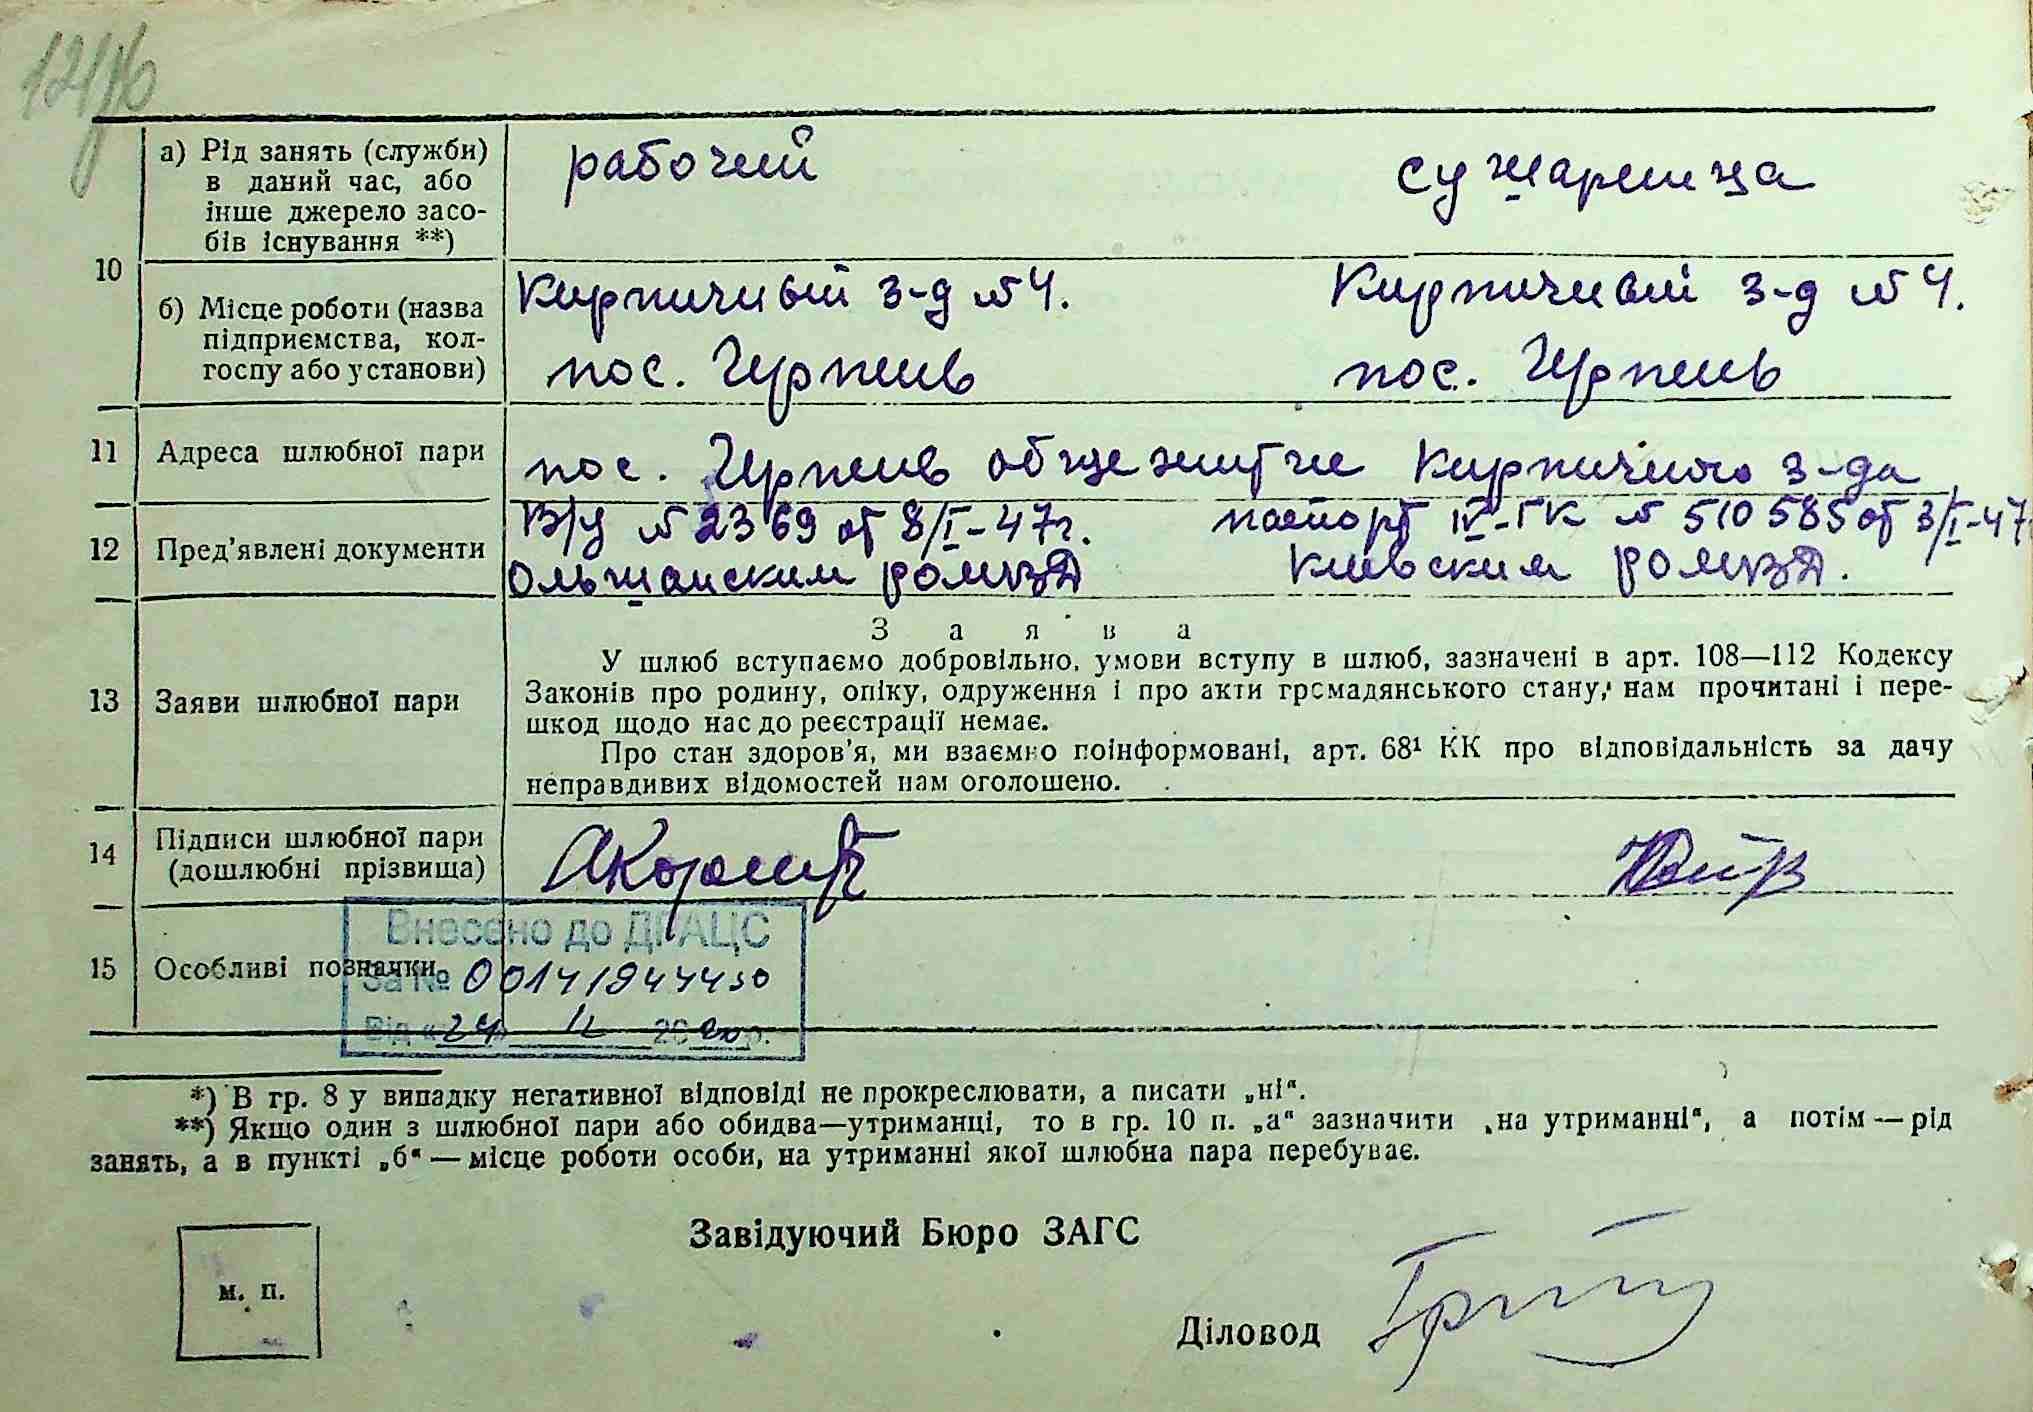 а) Рід занять (служби)
в даний час, або
інше джерело засо-
бів існування **)
рабочий
сушарница
10
б) Місце роботи (назва
підприємства, кол-
госпу або установи)
Кирпичный з-д № 4.
пос. Ирпень
Кирпичный з-д № 4.
пос. Ирпень
11
Адреса шлюбної пари
пос. Ирпень общежитие Кирпичного з-да
12
Пред’явлені документи
В/у № 2369 от 8/I-47г.
Ольшанским РОМВД
паспорт IV-ГК № 510585 от 3/I-47
Киевским РОМВД.
13
Заяви шлюбної пари
Заява
У шлюб вступаємо добровільно, умови вступу в шлюб, зазначені в арт. 108—112 Кодексу
Законів про родину, опіку, одруження і про акти громадянського стану, нам прочитані і пере-
шкод щодо нас до реєстрації немає.
Про стан здоров’я, ми взаємно поінформовані, арт. 68¹ КК про відповідальність за дачу
неправдивих відомостей нам оголошено.
14
Підписи шлюбної пари
(дошлюбні прізвища)
15
Особливі позначки
Внесено до ДРАЦС
За № 00141944450
Від «24» 12 2020 р.
*) В гр. 8 у випадку негативної відповіді не прокреслювати, а писати „ні“.
**) Якщо один з шлюбної пари або обидва—утриманці, то в гр. 10 п. „а“ зазначити „на утриманні“, а потім — рід
занять, а в пункті „б“ — місце роботи особи, на утриманні якої шлюбна пара перебуває.
Завідуючий Бюро ЗАГС
м. п.
Діловод